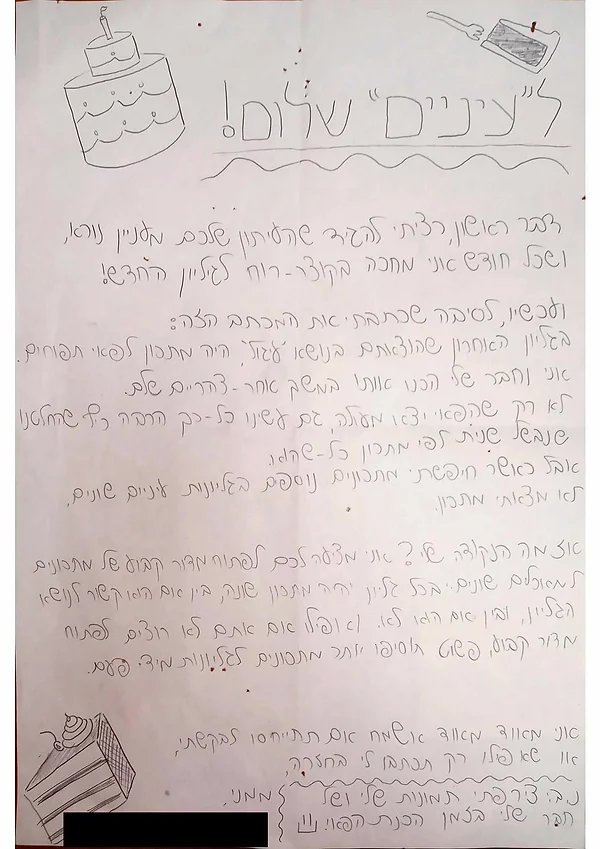 ל"עיניים" שלום!
דבר ראשון, רציתי להגיד שהעיתון שלכם מעניין נורא,
ושכל חודש אני מחכה בקוצר-רוח לגיליון החדש!
ועכשיו, לסיבה שכתבתי את המכתב הזה:
בגליון האחרון שהוצאתם בנושא 'עגול', היה מתכון לפאי תפוחים.
אני וחבר שלי הכנו אותו במשך אחר-צהריים שלם.
לא רק שהפאי יצא מעולה, גם עשינו כל-כך הרבה כיף שהחלטנו
שנבשל שנית לפי מתכון כל-שהוא.
אבל כאשר חיפשתי מתכונים נוספים בגליונות עיניים שונים,
לא מצאתי מתכון.
אז מה הנקודה שלי? אני מציעה לכם לפתוח מדור קבוע של מתכונים
למאכלים שונים. בכל גליון יהיה מתכון שונה, בין אם הוא קשור לנושא
הגליון, ובין אם הוא לא. ואפילו אם אתם לא רוצים לפתוח
מדור קבוע, פשוט תוסיפו יותר מתכונים לגליונות מידי פעם.
אני מאוד מאוד אשמח אם תתייחסו לבקשתי,
או שאפילו רק תכתבו לי בחזרה,
ממני.
נ.ב. צירפתי תמונות שלי ושל
חבר שלי בזמן הכנת הפאי.